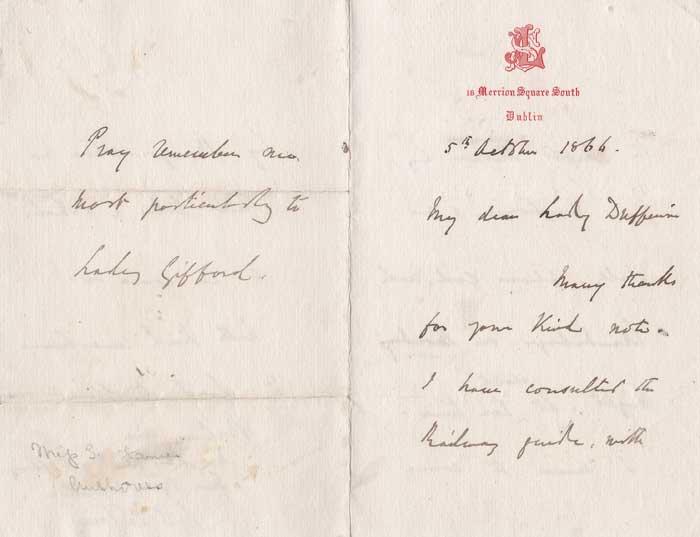 18 Merrion Square South
Dublin
5th October 1866.
My dear Lady Dufferin
Many thanks
for your kind note.
I have consulted the
Railway guide, with
Pray remember me
most particularly to
Lady Gifford.
Miss